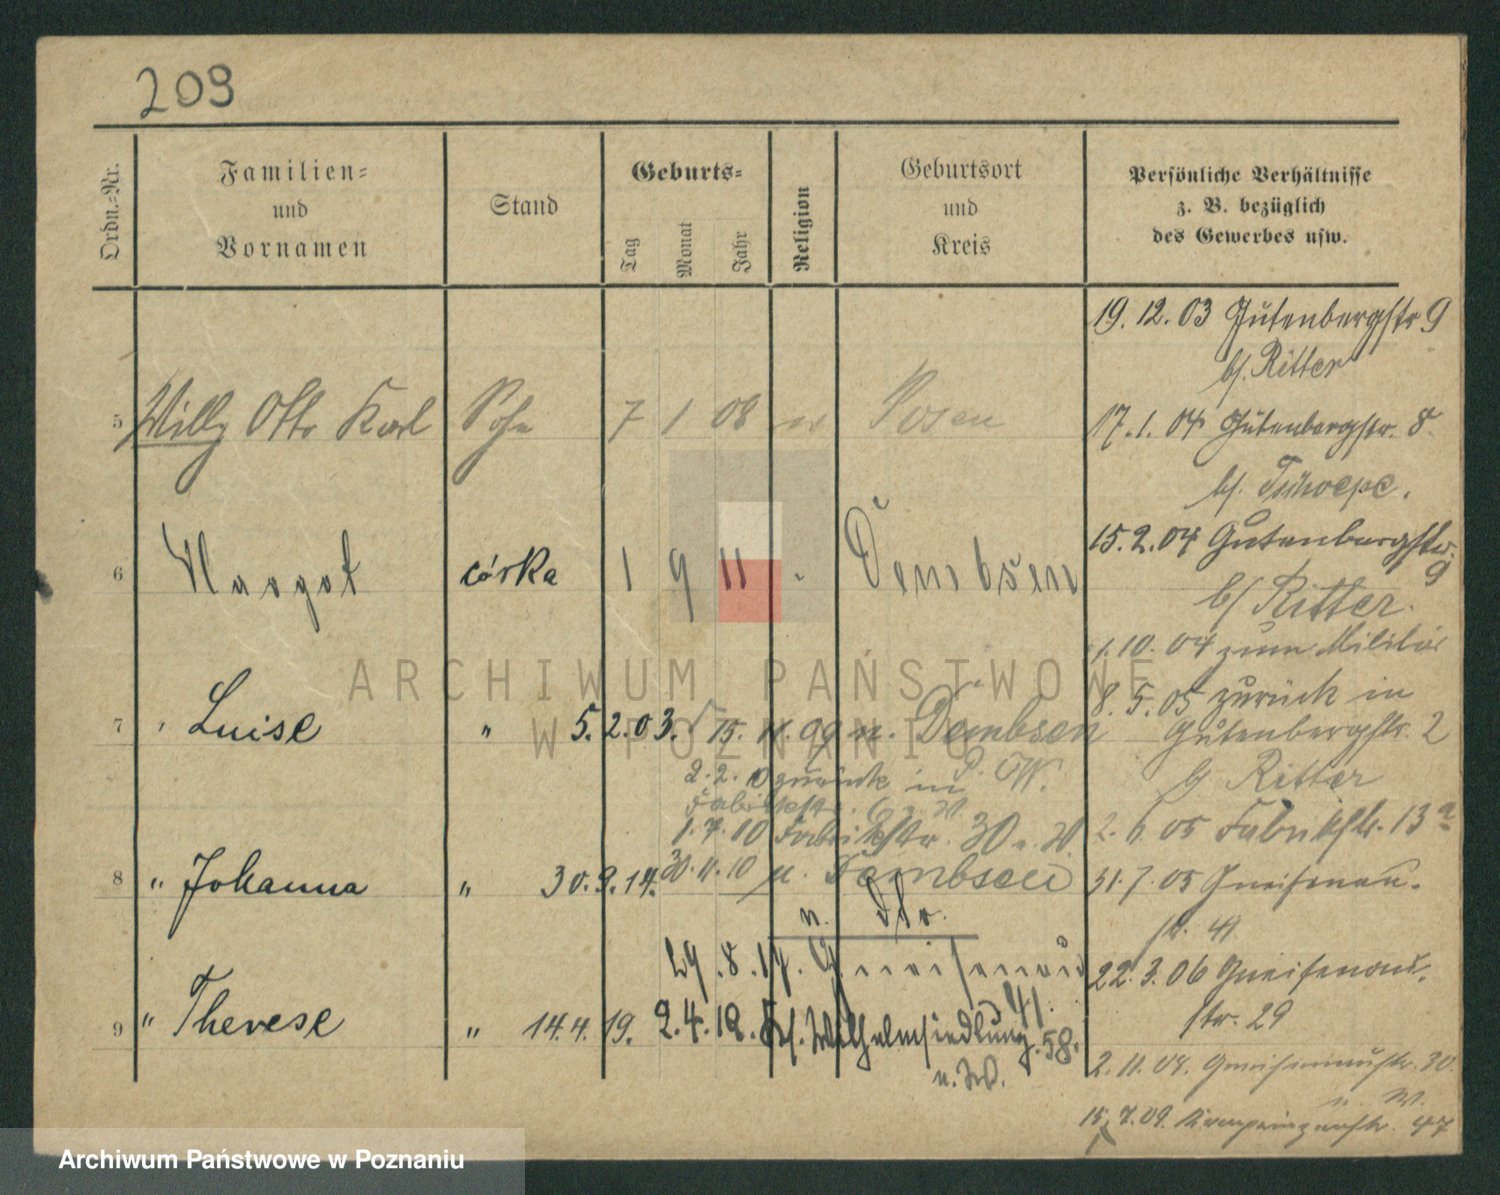 209
Ordn.=Nr.
Familien=
und
Vornamen
Stand
Geburts=
Tag
Monat
Jahr
Religion
Geburtsort
und
Kreis
Persönliche Verhältnisse
z. B. bezüglich
des Gewerbes usw.
19. 12. 03 Gutenbergstr 9
b/. Ritter
5 Willy Otto Karl Sohn 7 1 08 Posen
17. 1. 04 Gutenbergstr. 8
b/.
15. 2. 04 Gutenbergstr. 9
b/ Ritter.
6 Margot córka 1 9 11 Dembsen
1. 10. 04 zum Militär
8. 5. 05 zurück in
Gutenbergstr. 2
b/ Ritter
7 " Luise " 5. 2. 03. 15. 11. 09 n. Dembsen
2. 2. 10 zurück in P. W.
Fabrikstr.
1. 7. 10 Fabrikstr. 30 n. W.
2. 6. 05 Fabrikstr. 13a
8 " Johanna " 30. 9. 14. 30. 11. 10 n. Dembsen
31. 7. 05 Gneisenau-
str. 41
n. Str.
29. 8. 17. Gneisenau
41.
22. 3. 06 Gneisenau-
str. 29
9 " Therese " 14. 4. 19. 2. 4. 18. Wilhelmsiedlung. 58.
n. W.
2. 11. 07. Gneisenaustr. 30
n. W.
15. 7. 09. Kronprinzenstr. 47
ARCHIWUM PAŃSTWOWE
W POZNANIU
Archiwum Państwowe w Poznaniu